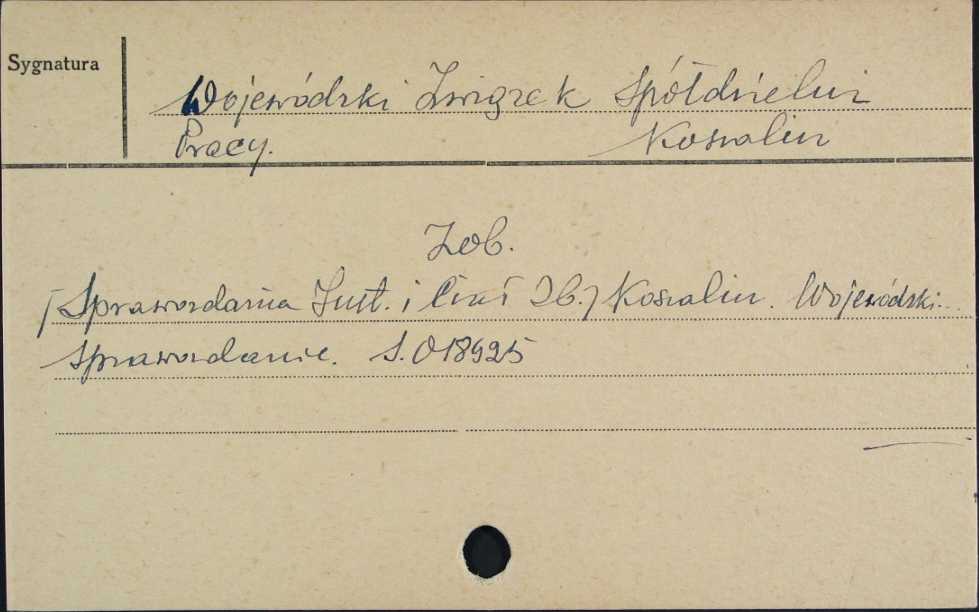 Sygnatura
Wojewódzki Związek Spółdzielni
Pracy. Koszalin
Zob.
[Sprawozdania Inst. i Ciał Zb.] Koszalin. Wojewódzki..
Sprawozdanie. S.018925